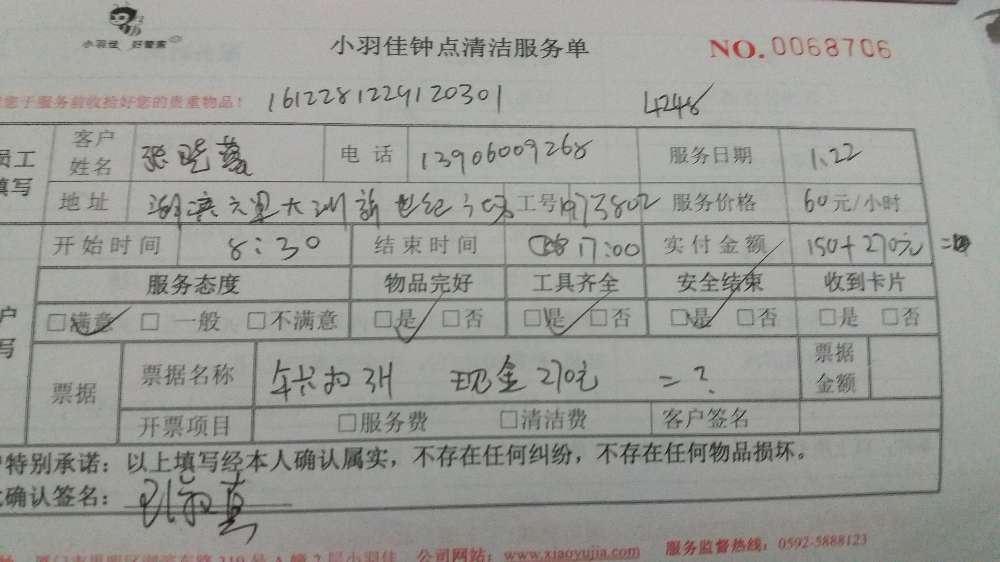 小羽佳 好管家
小羽佳钟点清洁服务单
NO.0068706
您于服务前收拾好您的贵重物品!
1612281229120301
4248
员工填写
客户姓名 张晓 电话 13906009268 服务日期 1.22
地址 湖滨六里大洲新世纪 工号 服务价格 60元/小时
开始时间 8:30 结束时间 17:00 实付金额 150+270元
服务态度 物品完好 工具齐全 安全结束 收到卡片
□满意 □一般 □不满意 □是 □否 □是 □否 □是 □否 □是 □否
票据 票据名称 3H 现金270元 =? 票据金额
开票项目 □服务费 □清洁费 客户签名
特别承诺:以上填写经本人确认属实,不存在任何纠纷,不存在任何物品损坏。
确认签名:
公司网站:www.xiaoyujia.com 服务监督热线:0592-5888123